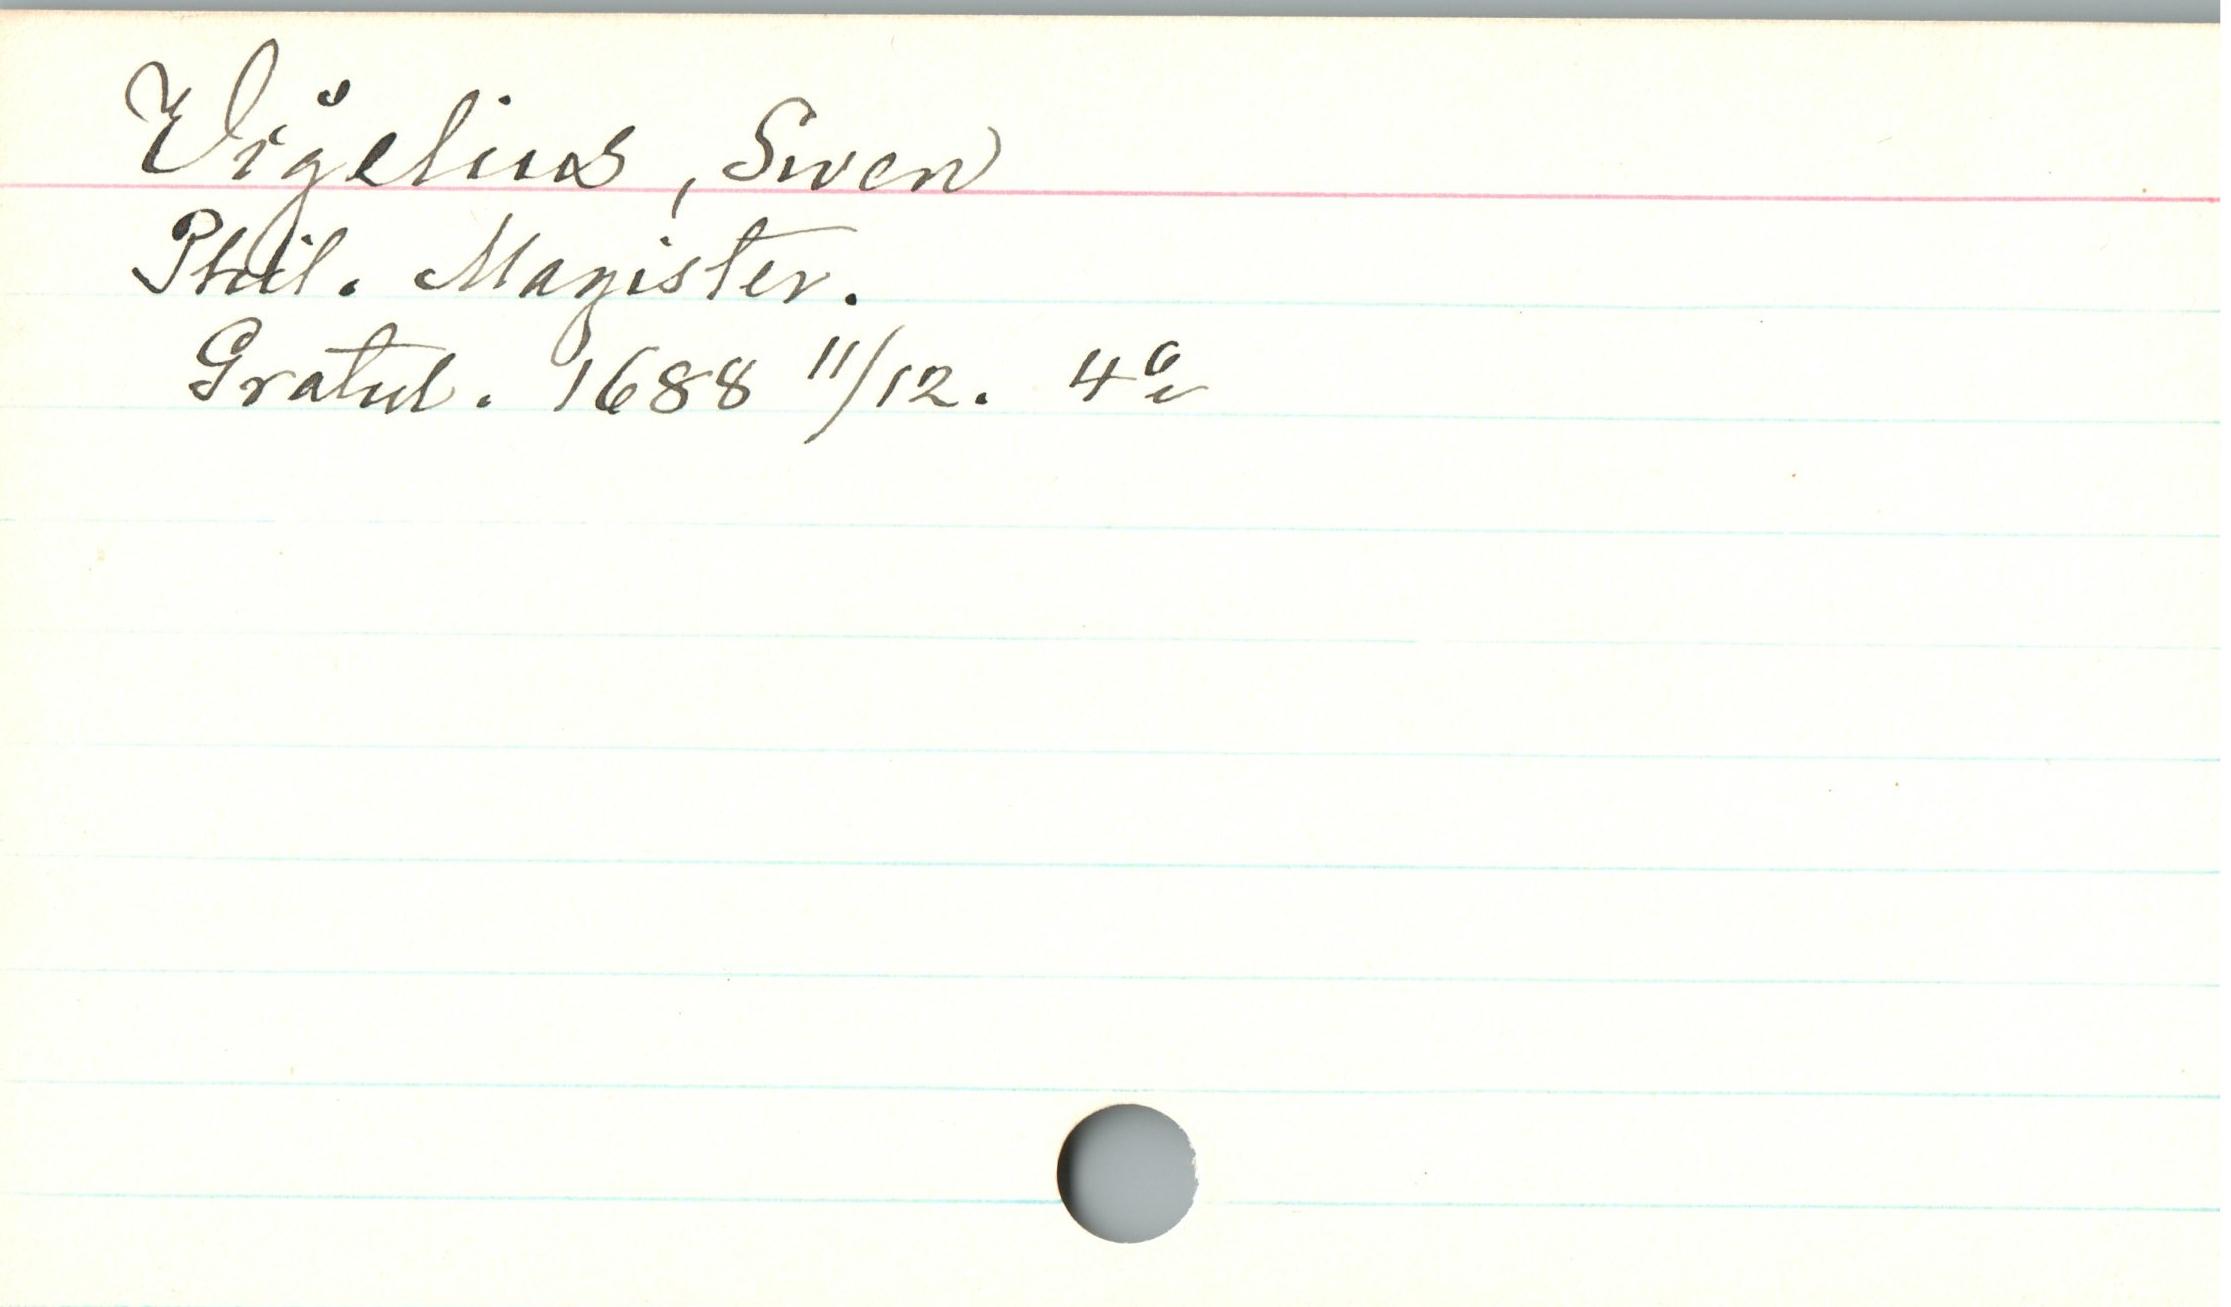 Vigelius, Swen
Phil. Magister.
Gratul. 1688 11/12. 4º